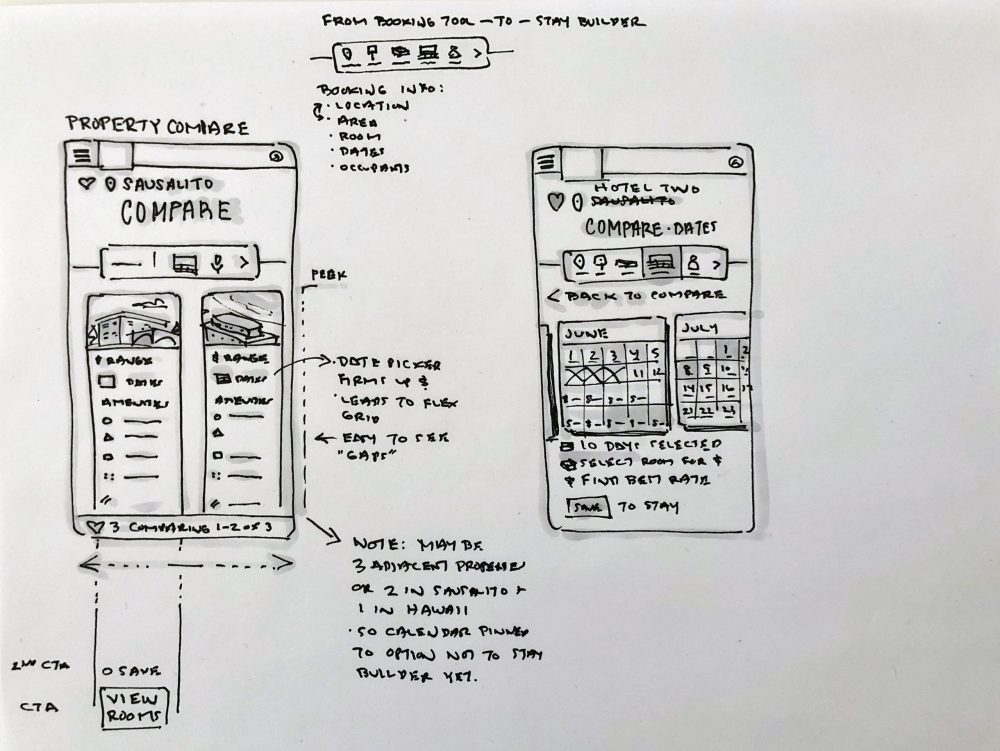 FROM BOOKING TOOL - TO - STAY BUILDER
BOOKING INFO:
· LOCATION
· AREA
· ROOM
· DATES
· OCCUPANTS
PROPERTY COMPARE
SAUSALITO
COMPARE
$ RANGE
DATES
AMENITIES
$ RANGE
DATES
AMENITIES
3 COMPARING 1-2 OF 3
2ND CTA
O SAVE
CTA
VIEW
ROOMS
PEEK
· DATE PICKER
FIRMS UP $
· LEADS TO FLEX
GRID
EASY TO SEE
"GAPS"
NOTE: MAYBE
3 ADJACENT
OR 2 IN SAUSALITO &
1 IN HAWAII
· SO CALENDAR PINNED
TO OPTION NOT TO STAY
BUILDER YET.
HOTEL TWO
SAUSALITO
COMPARE · DATES
< BACK TO COMPARE
JUNE
1 2 3 4 5
11 12
JULY
1 2
8 9 10
14 15 16 17
21 22 23
10 DAYS SELECTED
SELECT ROOM FOR $
$ FIND BEST RATE
SAVE TO STAY